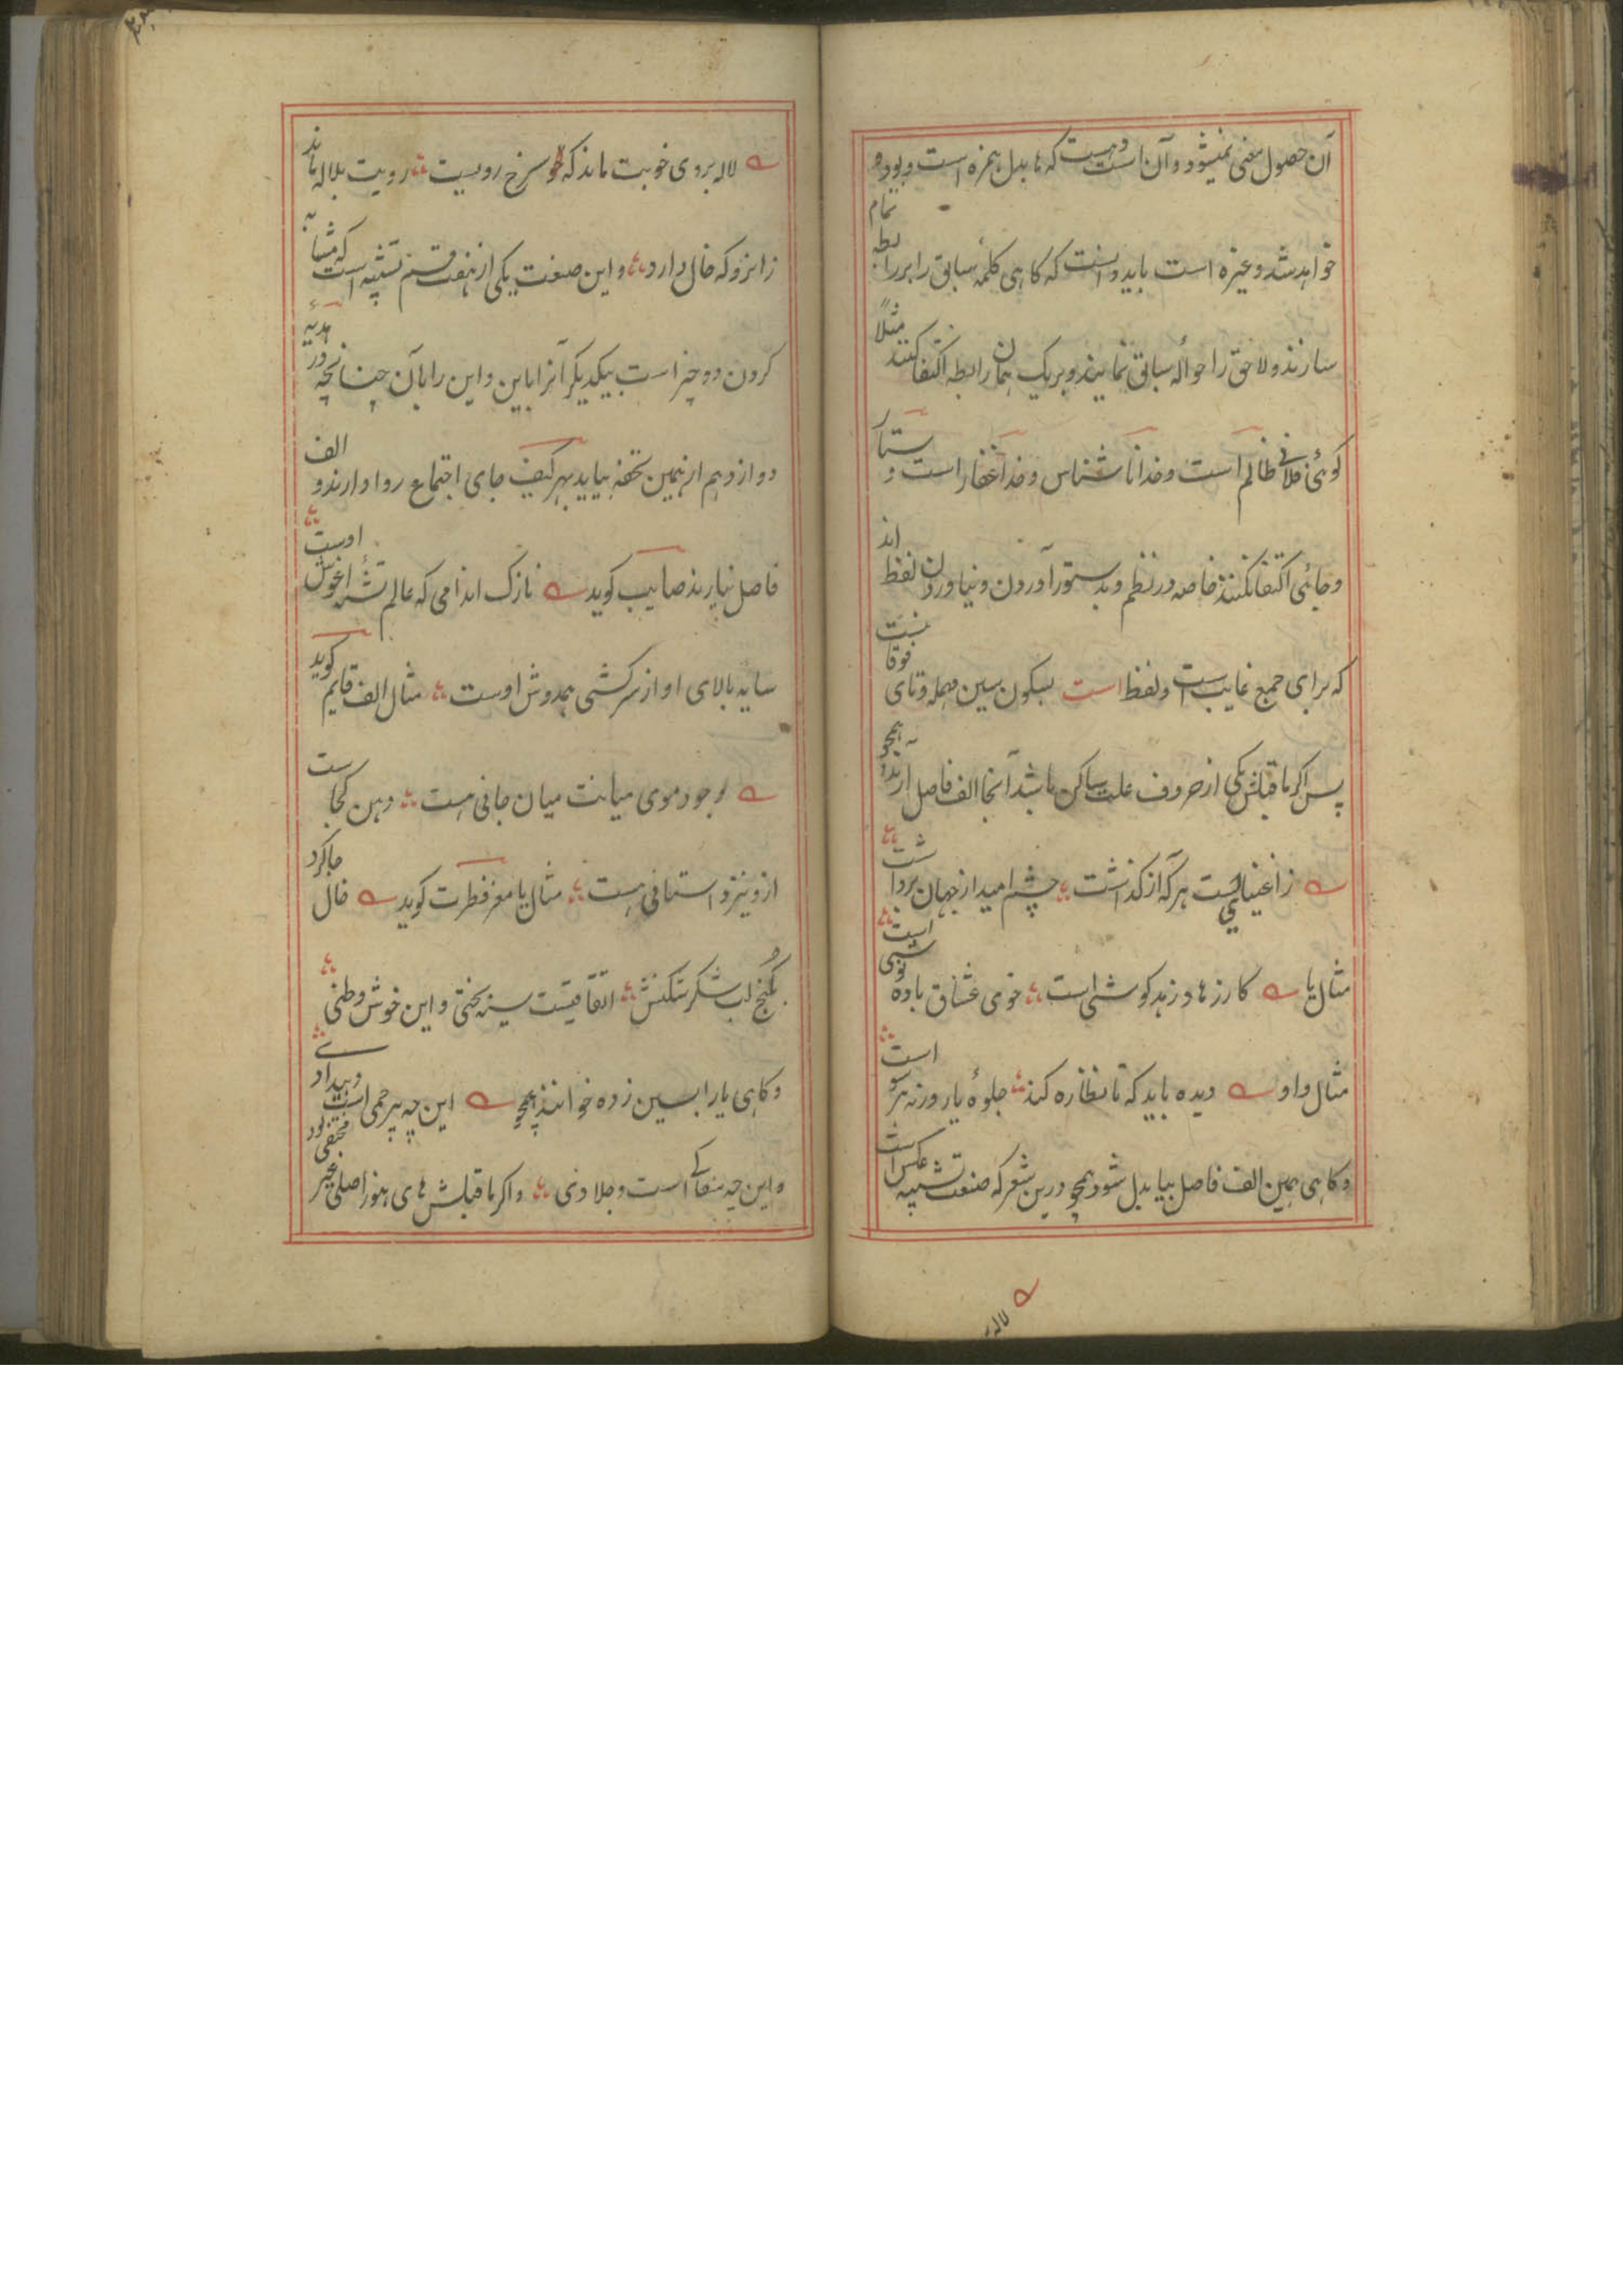 آن حصول معنی نمیشود و آن است و هست که ها بدل همزه است و بوده
خواهد شد و غیره است باید دانست که کاهی کلمهٔ سابق را برابطه تمام
سازند و لاحق را حوالهٔ سابق نمایند و بر یک همان رابطه اکتفا کنند مثلاً
کوئی فلانی ظالم است و خدا ناشناس و خدا غفار است و ستار
و جائی اکتفا نکنند خاصه در نظم و بدستور آوردن و نیاوردن لفظ اند
که برای جمع غایب است و لفظ است بسکون سین مهمله و تای فوقا نیست
پس اگر ماقبلش یکی از حروف علت ساکن باشد آنجا الف فاصل آرند همچو
زاغنیا نیست هر که از کذاشت چشم امید از جهان برداشت
مثال یا کار زها و زهد کوشی است خوی عشاق باده نوشی است
مثال واو دیده باید که تا نظاره کند جلوهٔ یار ورنه هر سو است
و کاهی همین الف فاصل بیا بدل شود همچو درین شعر که صنعت تشبیه عکس است
لاله
لاله بروی خوبت ماند که خو سرخ رویست رویت بلاله ماند
زانرو که خال دارد و این صنعت یکی از هفت قسم تشبیه است که مشابه
کردن دو چیز است بیکدیکر آنرا باین و این را بآن چنانچه در هدیهٔ
دوازدهم از همین تحفه بیاید بهر کیف جای اجتماع روا دارند و الف
فاصل نیارند صایب کوید نازک اندامی که عالم تشنهٔ اغوش اوست
سایه بالای او از سرکشی همدوش اوست مثال الف قایم کوید
وجود موی میانت میان جانی هست دهن کجاست
ازو نیز داستانی هست مثال یا معز فطرت کوید خال جا کرد
بکنج لب شکر شکنش اتفاقیست سیه بختی و این خوش وطنی
و کاهی یا را بسین زده خوانند همچو این چه بیرحمی است و بیدادی
و این چه سفاکی است و جلادی و اگر ماقبلش های هنوز اصلی غیر مختفی بود